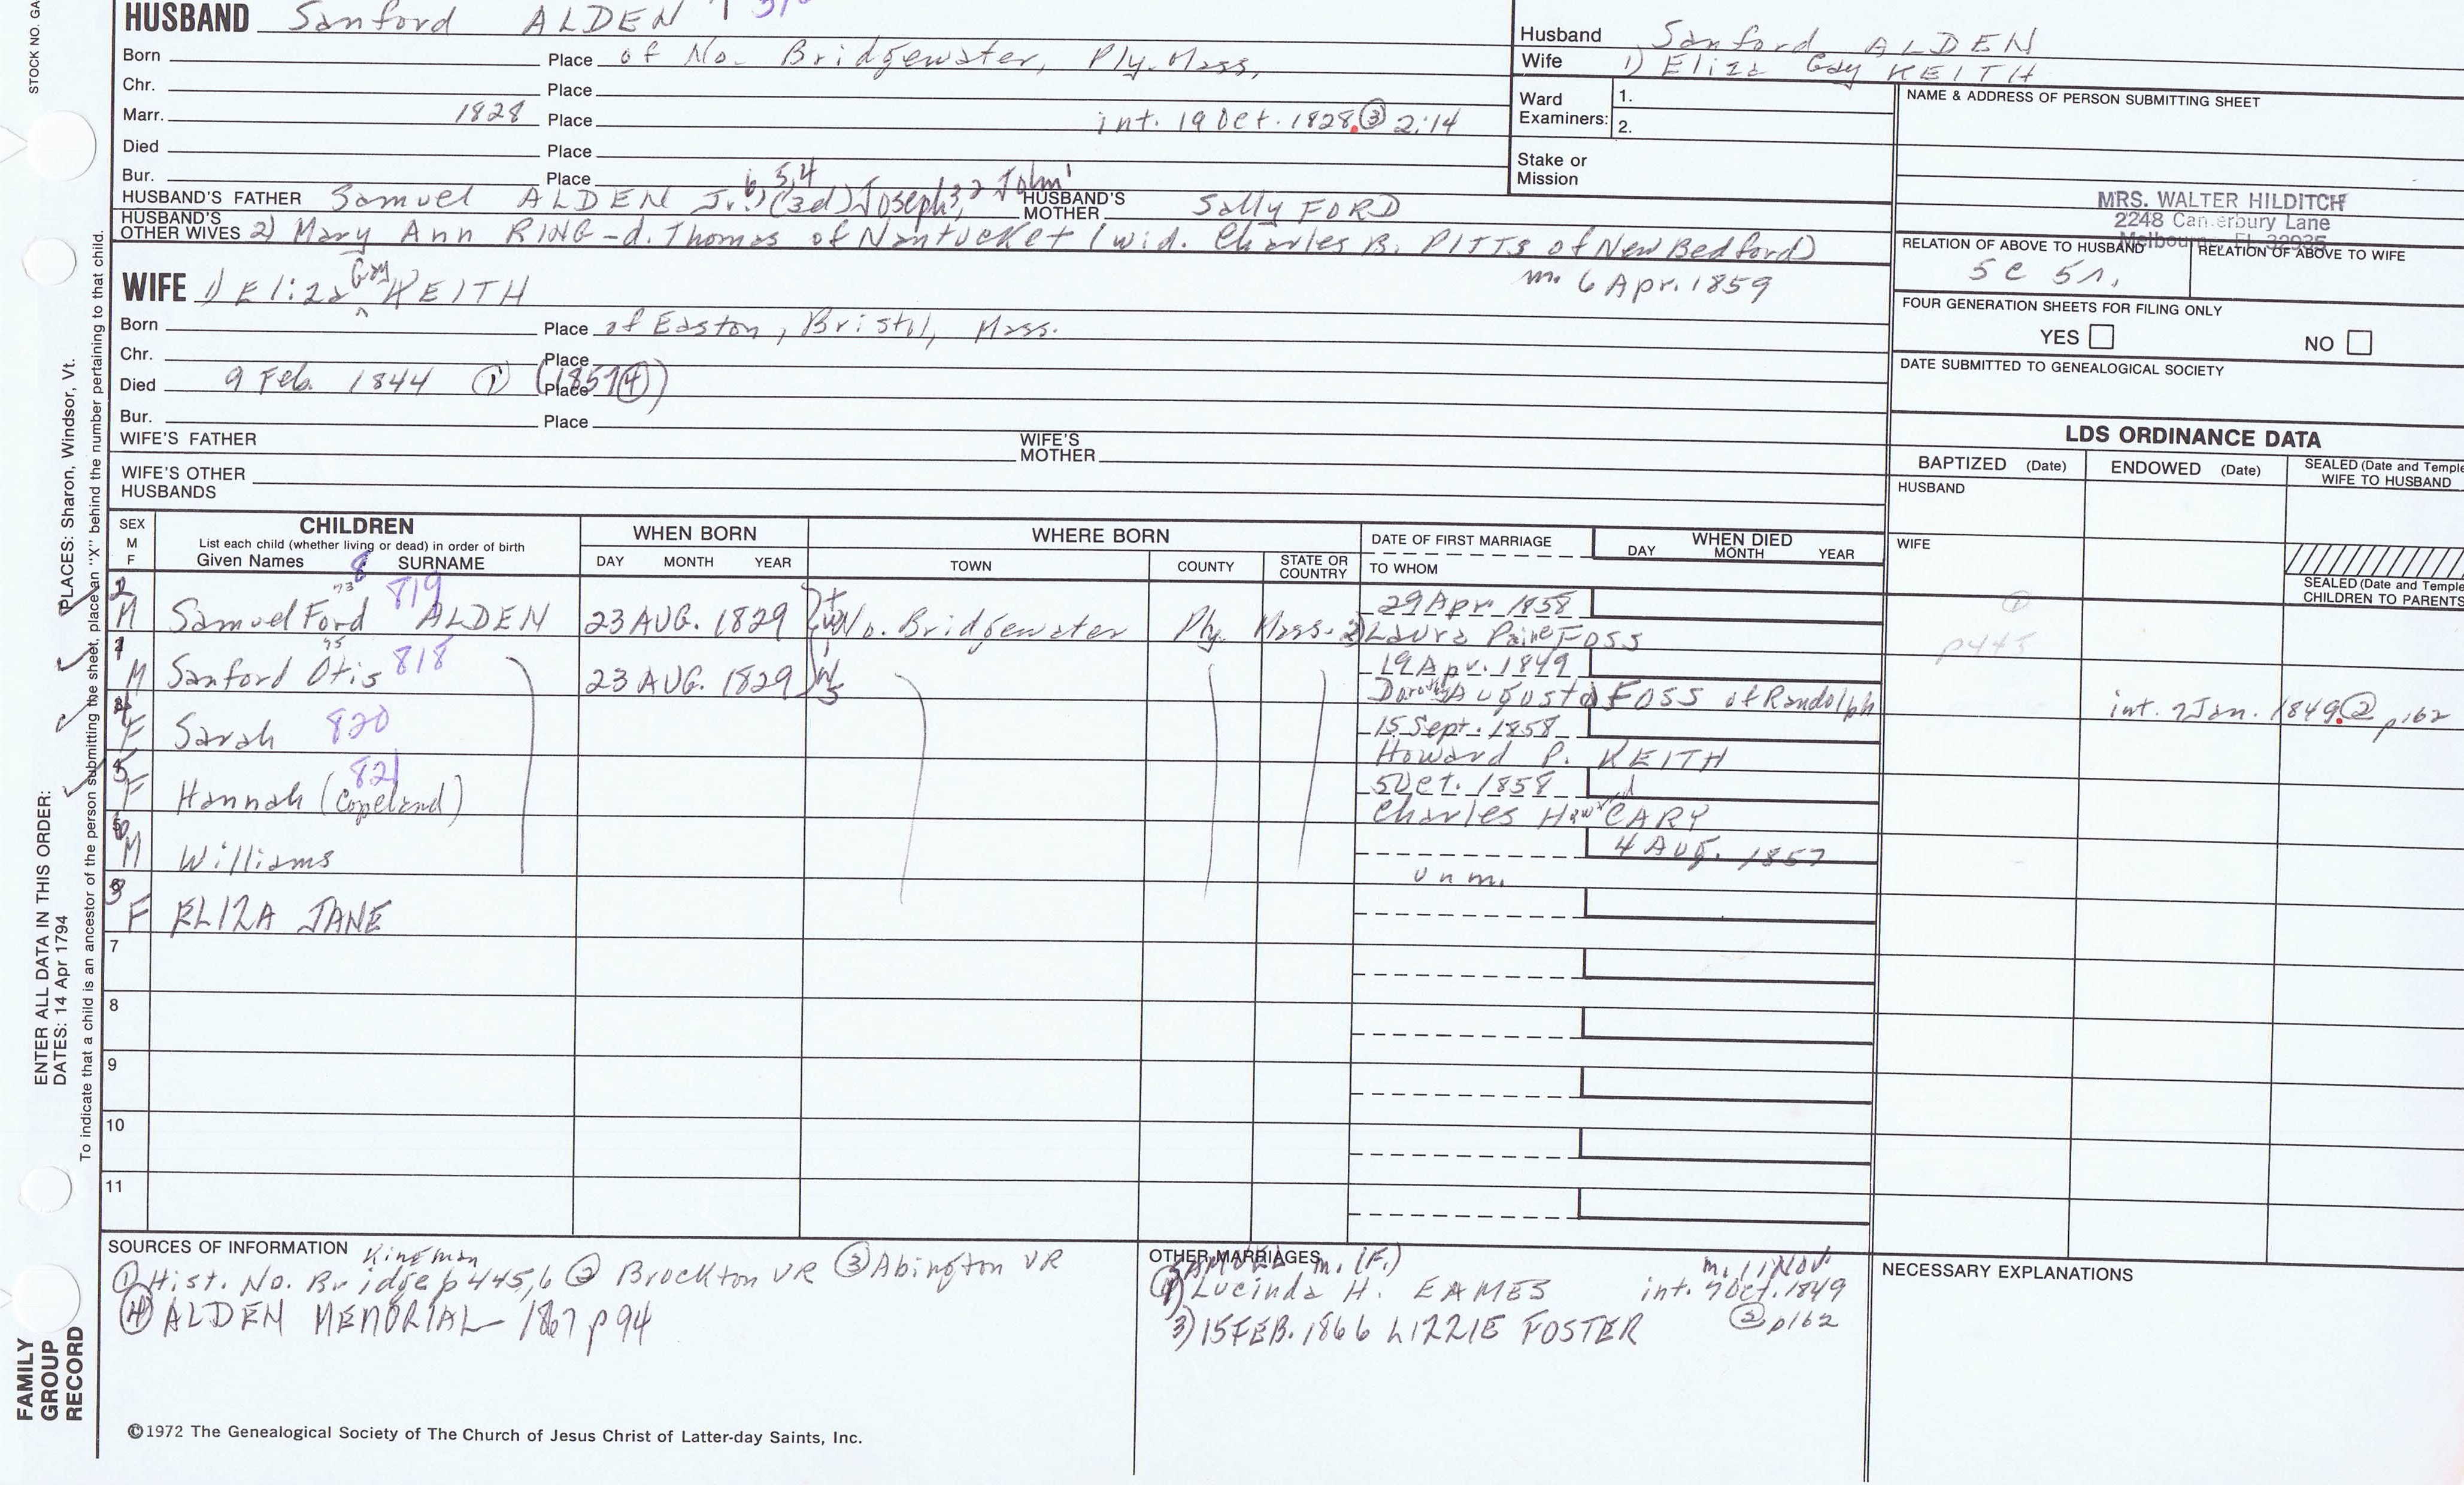 STOCK NO. GA
HUSBAND Sanford ALDEN
Born Place of No. Bridgewater, Ply. Mass,
Chr. Place
Marr. 1828 Place int. 19 Oct. 1828 ③ 2:14
Died Place
Bur. Place
HUSBAND'S FATHER Samuel ALDEN Jr. 6 (3d) 5,4 Joseph 3,2 John 1 HUSBAND'S MOTHER Sally FORD
HUSBAND'S OTHER WIVES 2) Mary Ann RING - d. Thomas of Nantucket (wid. Charles B. PITTS of New Bedford)
m. 6 Apr. 1859
WIFE 1) Eliza Gay KEITH
Born Place of Easton, Bristol, Mass.
Chr. Place
Died 9 Feb. 1844 ① Place (1857 ④)
Bur. Place
WIFE'S FATHER WIFE'S MOTHER
WIFE'S OTHER HUSBANDS
Husband Sanford ALDEN
Wife 1) Eliza Gay KEITH
Ward Examiners: 1.
2.
Stake or Mission
NAME & ADDRESS OF PERSON SUBMITTING SHEET
MRS. WALTER HILDITCH
2248 Canterbury Lane
Melbourne, FL 32935
RELATION OF ABOVE TO HUSBAND RELATION OF ABOVE TO WIFE
5c 5r.
FOUR GENERATION SHEETS FOR FILING ONLY
YES NO
DATE SUBMITTED TO GENEALOGICAL SOCIETY
LDS ORDINANCE DATA
BAPTIZED (Date) ENDOWED (Date) SEALED (Date and Temple
WIFE TO HUSBAND
HUSBAND
WIFE
SEALED (Date and Temple
CHILDREN TO PARENTS
SEX M F CHILDREN WHEN BORN WHERE BORN DATE OF FIRST MARRIAGE WHEN DIED
List each child (whether living or dead) in order of birth
Given Names SURNAME DAY MONTH YEAR TOWN COUNTY STATE OR COUNTRY TO WHOM DAY MONTH YEAR
8
2 M Samuel Ford 73 ALDEN 819 23 AUG. 1829 No. Bridgewater Ply. Mass. 29 Apr. 1858
2) Laura Paine FOSS
①
p 445
1 M Sanford Otis 75 818 23 AUG. 1829 19 Apr. 1849
Dorothy Augusta FOSS of Randolph
int. 7 Jan. 1849 ② p162
4 F Sarah 820 15 Sept. 1858
Howard P. KEITH
5 F Hannah (Copeland) 821 5 Oct. 1858
Charles Howard CARY
6 M Williams 4 AUG. 1857
unm.
3 F ELIZA JANE
7
8
9
10
11
SOURCES OF INFORMATION Kingman
① Hist. No. Bridge p 445,6 ② Brockton VR ③ Abington VR
④ ALDEN MEMORIAL 1867 p 94
OTHER MARRIAGES
SAMUEL m. (F.) m. 11 Nov.
1) Lucinda H. EAMES int. 7 Oct. 1849
② p162
3) 15 FEB. 1866 LIZZIE FOSTER
NECESSARY EXPLANATIONS
©1972 The Genealogical Society of The Church of Jesus Christ of Latter-day Saints, Inc.
FAMILY GROUP RECORD
ENTER ALL DATA IN THIS ORDER:
DATES: 14 Apr 1794
PLACES: Sharon, Windsor, Vt.
To indicate that a child is an ancestor of the person submitting the sheet, place an "X" behind the number pertaining to that child.